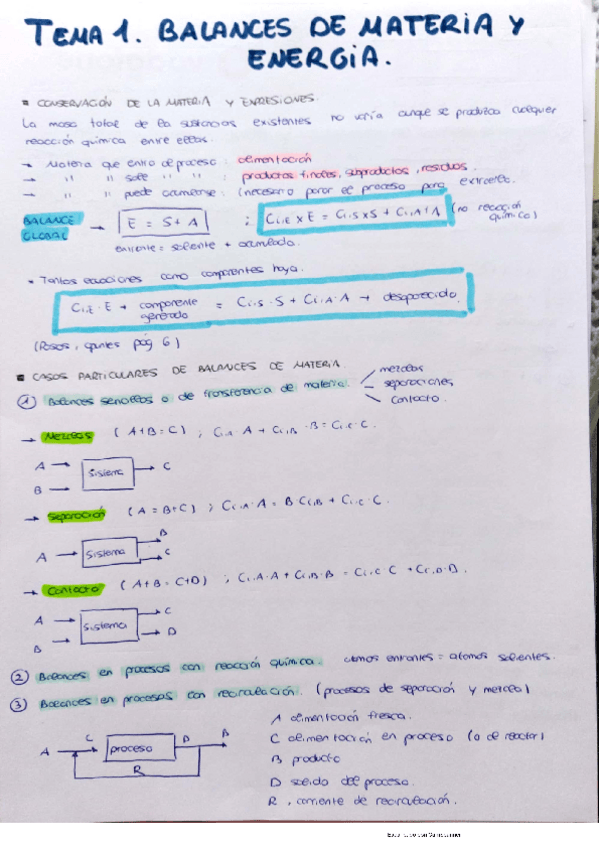 TEMA 1. BALANCES DE MATERIA Y
ENERGÍA.
CONSERVACIÓN DE LA MATERIA Y EXPRESIONES.
La masa total de las sustancias existentes no varía aunque se produzca cualquier
reacción química entre ellas.
→ Materia que entra al proceso: alimentación
→ " " sale " " : productos finales, subproductos, residuos.
→ " " puede acumularse: (necesario parar el proceso para extraerlo.
BALANCE
GLOBAL → E = S + A ; Ci,E x E = Ci,S x S + Ci,A x A (no reacción
química)
entrante = saliente + acumulado.
Tantas ecuaciones como componentes haya.
Ci,E · E + componente
generado = Ci,S · S + Ci,A · A + desaparecido.
(Pasos, apuntes pág 6)
CASOS PARTICULARES DE BALANCES DE MATERIA.
① Balances sencillos o de transferencia de materia.
mezclas
separaciones
contacto.
→ Mezclas (A+B=C) ; Ci,A · A + Ci,B · B = Ci,C · C.
A → Sistema → C
B →
→ Separación (A = B+C) ; Ci,A · A = B Ci,B + Ci,C · C.
A → Sistema → B
→ C
→ Contacto (A+B = C+D) ; Ci,A · A + Ci,B · B = Ci,C · C + Ci,D · D.
A → Sistema → C
B → → D
② Balances en procesos con reacción química. átomos entrantes = átomos salientes.
③ Balances en procesos con recirculación. (procesos de separación y mezcla)
A → C → proceso D → B
R
A alimentación fresca.
C alimentación en proceso (o de reactor)
B producto
D salida del proceso.
R, corriente de recirculación.